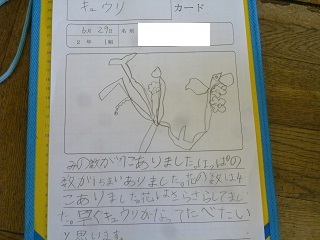 キュウリ
カード
6月29日 名前
2年 1組
みの数が1こありました。はっぱの
数が15まいありました。花の数は4
こありました。花はさらさらしてまし
た。早くキュウリがなってたべたい
と思います。